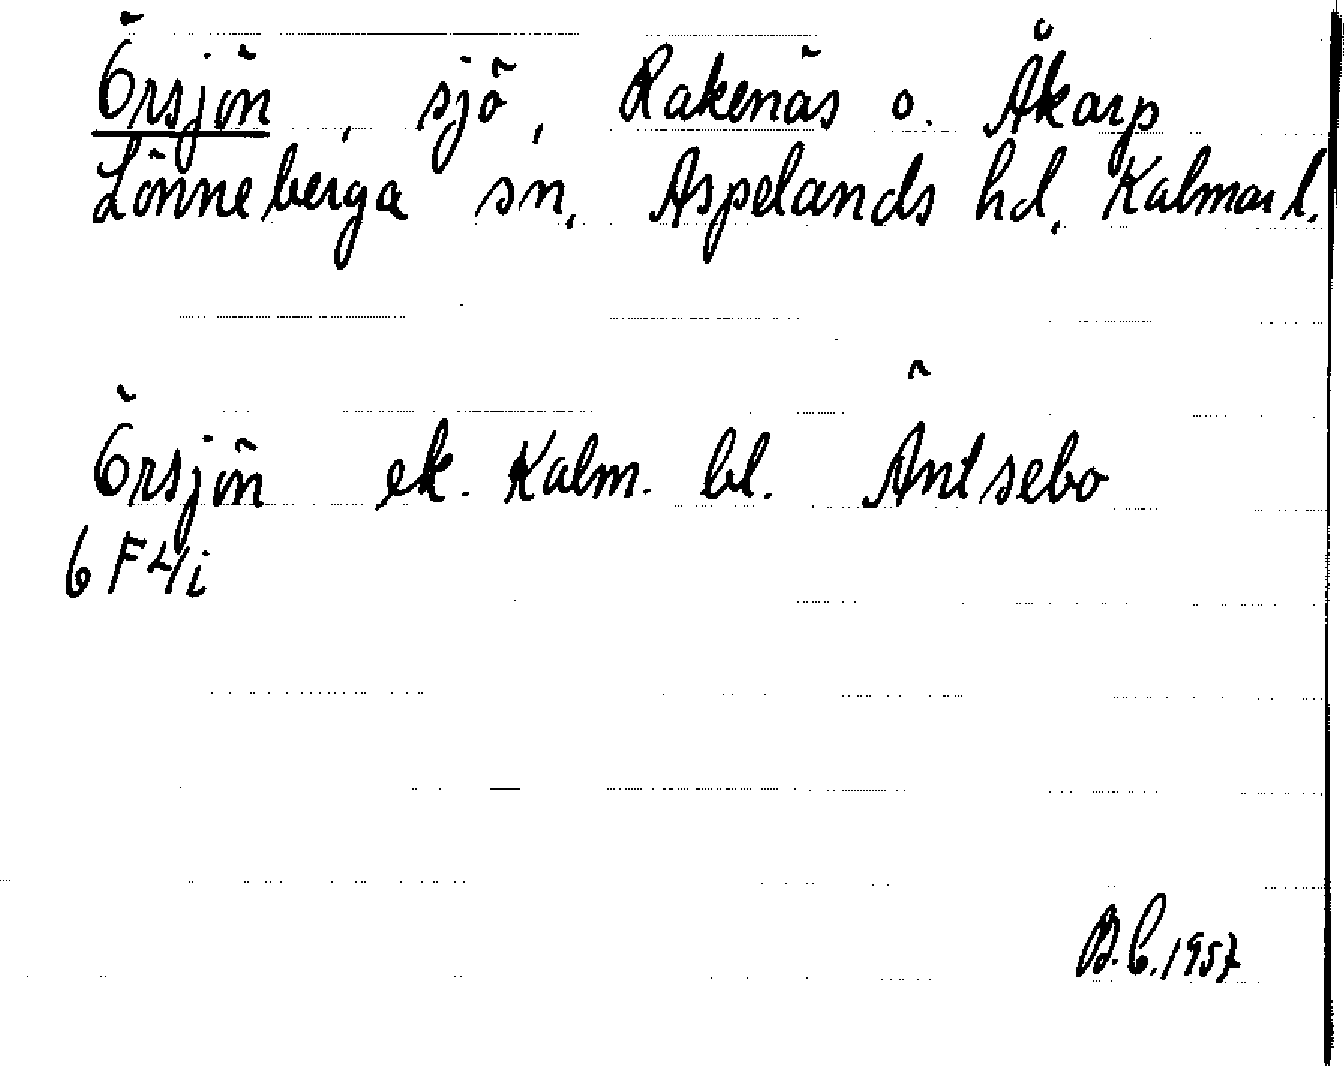 Örsjön, sjö, Rakenäs o. Åkarp
Lönneberga sn, Aspelands hd, Kalmar l.
Örsjön ek. Kalm. bl. Äntsebo
6 F 4/i
B.C. 1957